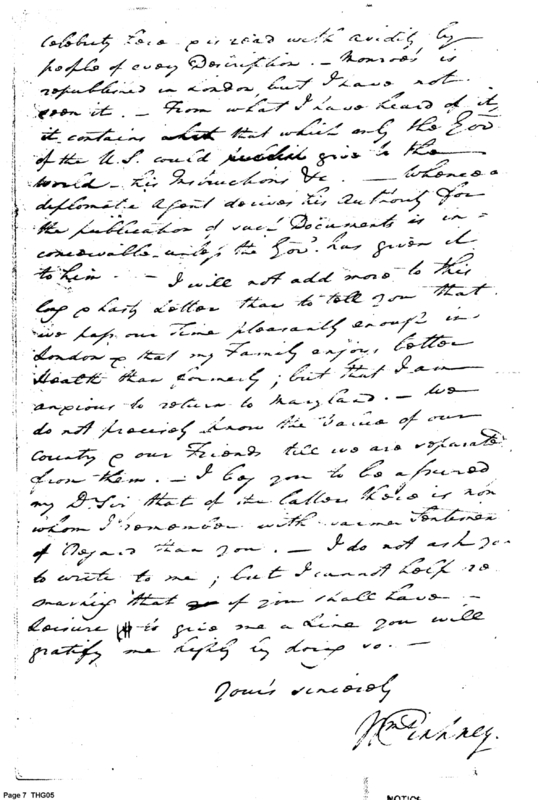 Celebrity here & is read with avidity by
people of every Description. – Monroe's is
republished in London, but I have not
seen it. – From what I have heard of it,
it contains that which only the Gov.
of the U.S. could give to the
world – his Instructions &c. – Whence a
diplomatic Agent derives his Authority for
the publication of such Documents is in=
conceivable unless the Gov.t has given it
to him. – I will not add more to this
long & hasty Letter than to tell you that
we pass our Time pleasantly enough in
London & that my Family enjoys better
Health than formerly; but that I am
anxious to return to Maryland. – We
do not precisely know the Value of our
Country & our Friends till we are separated
from them. – I beg you to be assured
my Dr Sir that of the latter there is non
whom I remember with warmer Sentimen
of Regard than you. – I do not ask yo
to write to me; but I cannot help re
marking that if you shall have
Leisure to give me a Line you will
gratify me highly by doing so. –
Yours sincerely
Wm Pinkney.
Page 7 THG05
NOTICE